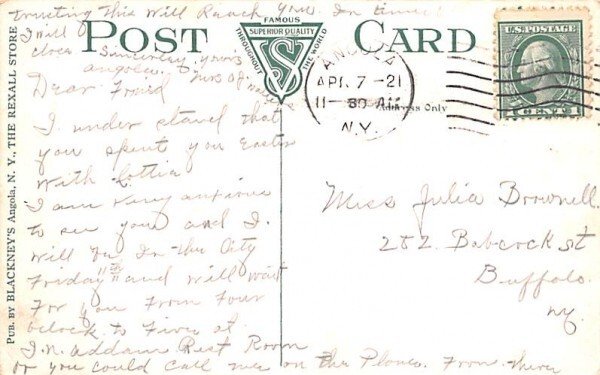 trusting This Will Reach you In time
I will
close Sincerely yours
POST CARD
FAMOUS
SUPERIOR QUALITY
THROUGHOUT THE WORLD
ANGOLA
APR 7 -21
11-30 AM
N.Y.
U.S. POSTAGE
Address Only
Dear Friend
I under stand that
you spent you Easter
With Lottie
I am very anxious
to see you and I.
Will be In the City
Friday and will wait
For you From Four
oclock to Five at
J.N. Addam Rest Room
or you could call me on the Phone. From there
Miss Julia Brownell
282 Babcock st
Buffalo
ny.
PUB. BY BLACKNEY'S Angola, N. Y., THE REXALL STORE